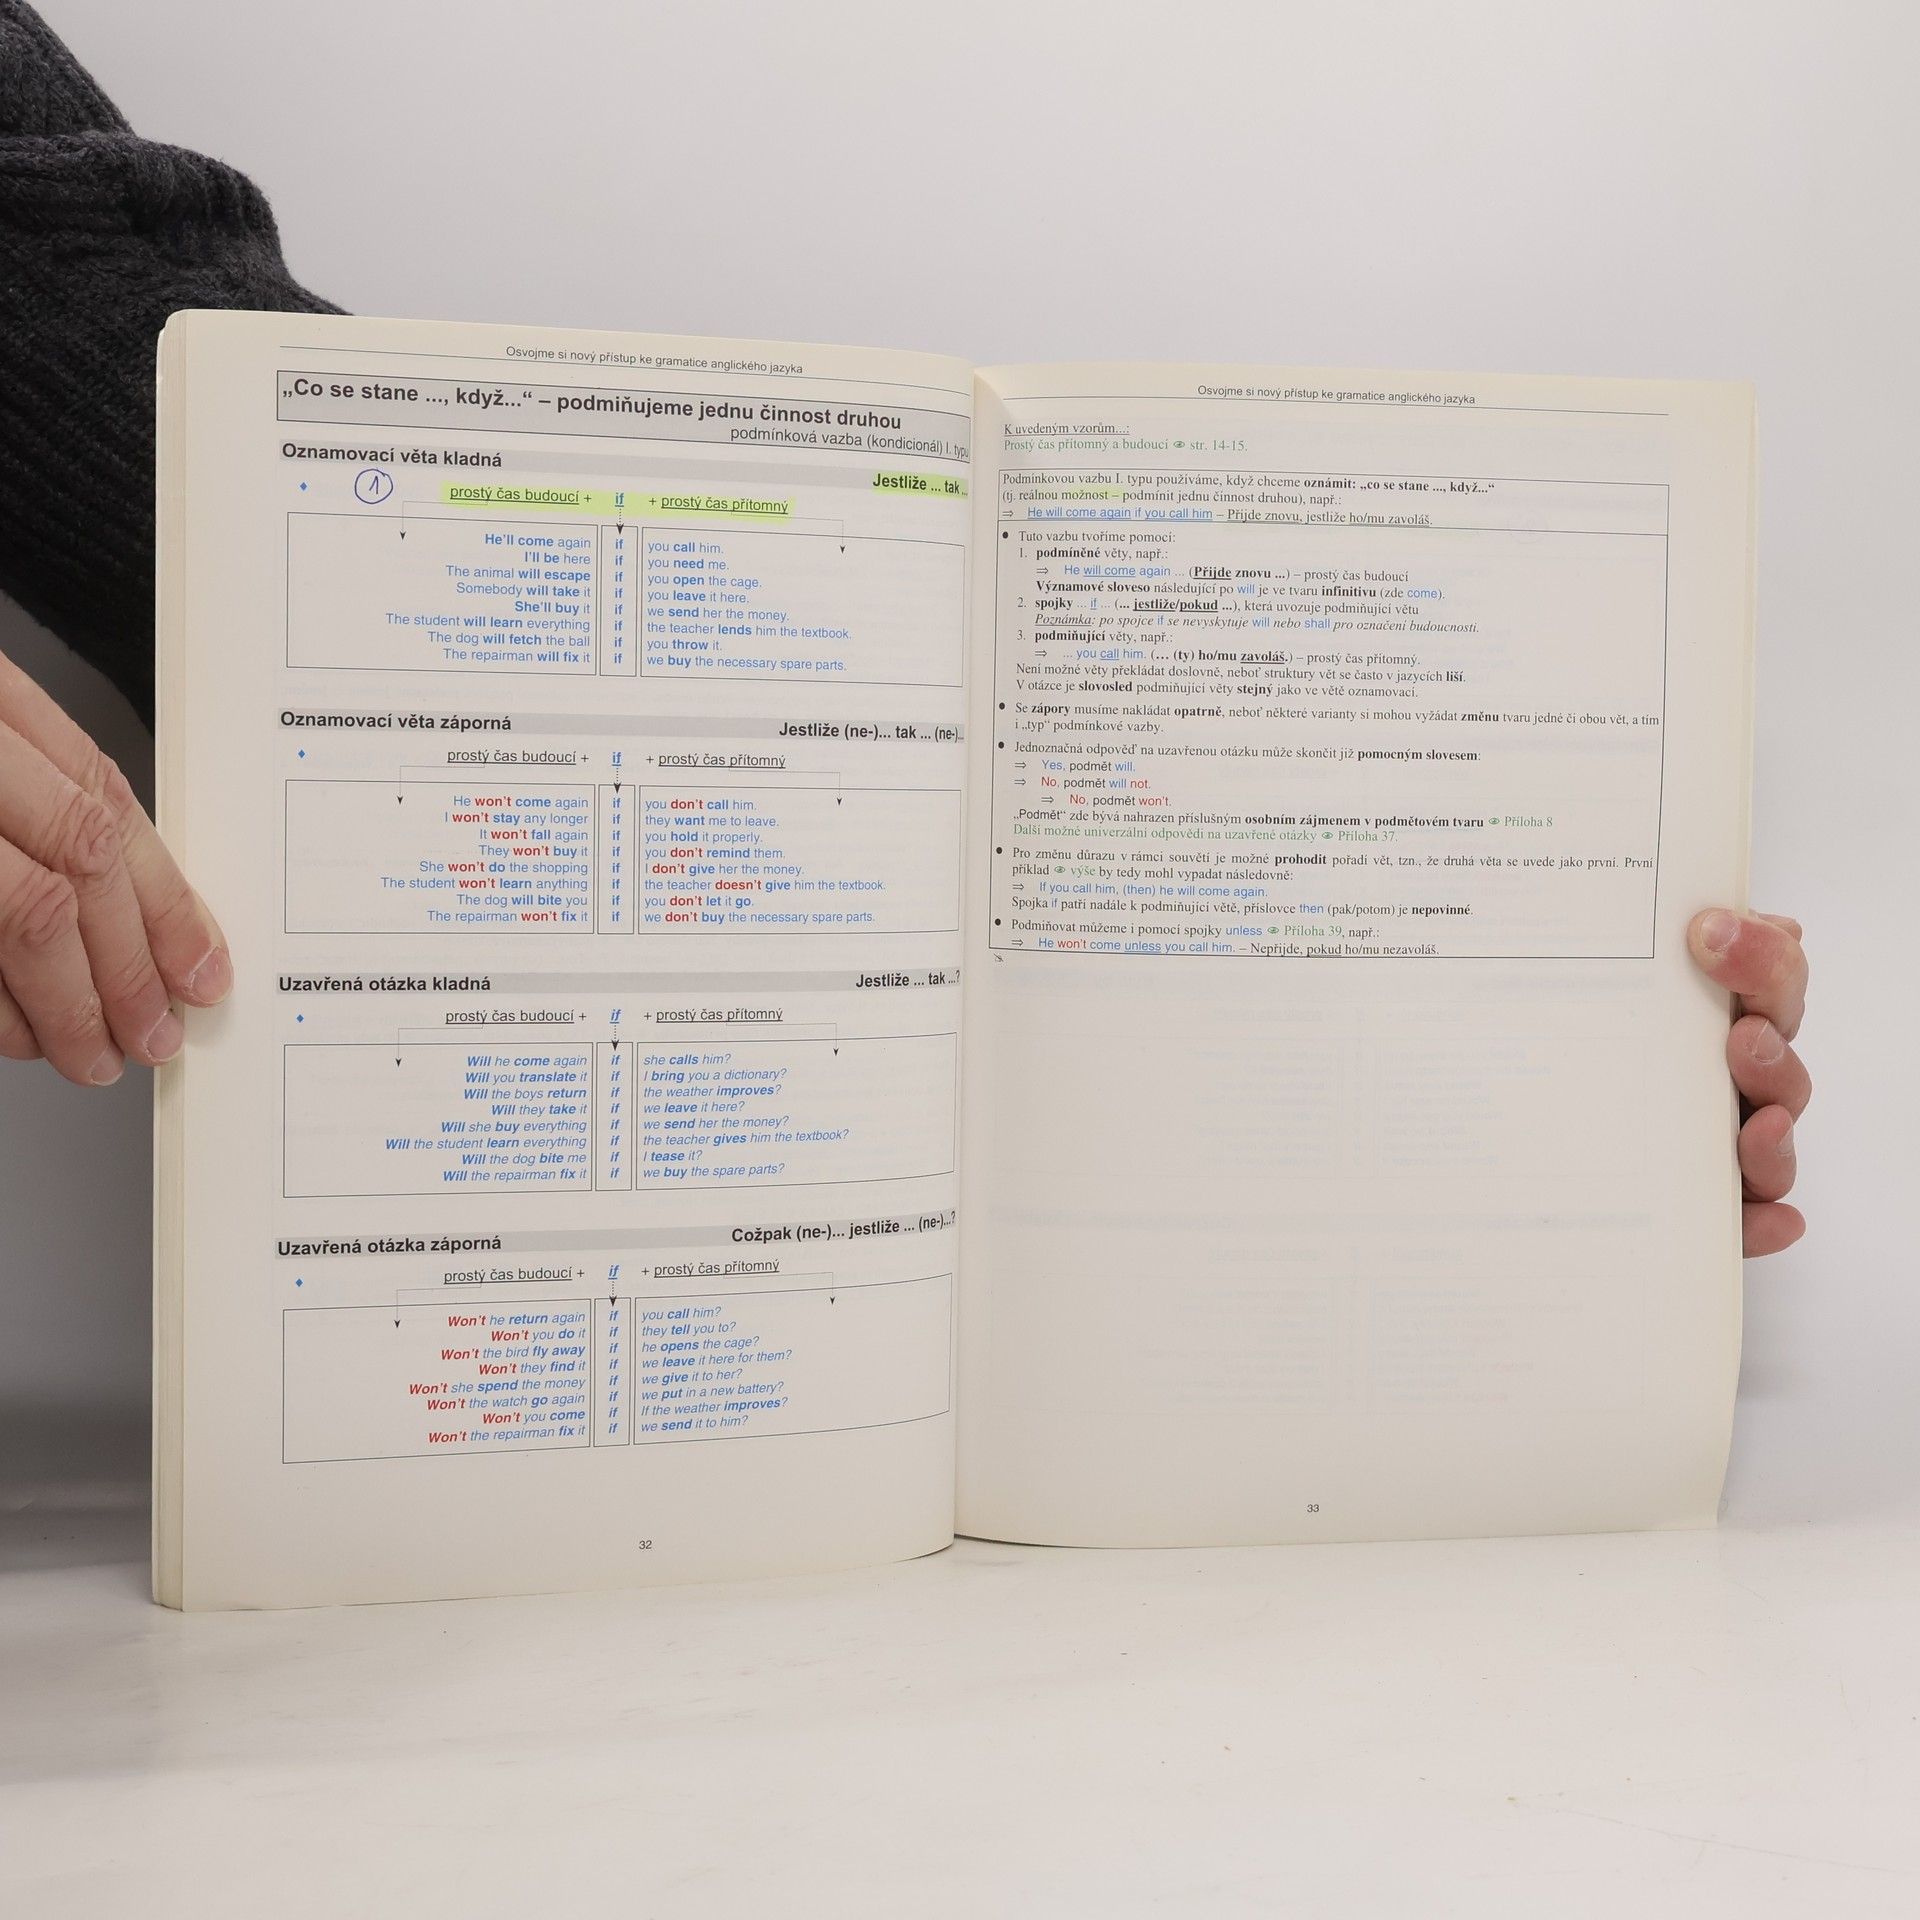 Osvojme si nový přístup ke gramatice anglického jazyka
„Co se stane ..., když...“ – podmiňujeme jednu činnost druhou
podmínková vazba (kondicionál) I. typu
Oznamovací věta kladná
Jestliže ... tak ...
1
prostý čas budoucí + if + prostý čas přítomný
He'll come again if you call him.
I'll be here if you need me.
The animal will escape if you open the cage.
Somebody will take it if you leave it here.
She'll buy it if we send her the money.
The student will learn everything if the teacher lends him the textbook.
The dog will fetch the ball if you throw it.
The repairman will fix it if we buy the necessary spare parts.
Oznamovací věta záporná
Jestliže (ne-)... tak ... (ne-)...
prostý čas budoucí + if + prostý čas přítomný
He won't come again if you don't call him.
I won't stay any longer if they want me to leave.
It won't fall again if you hold it properly.
They won't buy it if you don't remind them.
She won't do the shopping if I don't give her the money.
The student won't learn anything if the teacher doesn't give him the textbook.
The dog will bite you if you don't let it go.
The repairman won't fix it if we don't buy the necessary spare parts.
Uzavřená otázka kladná
Jestliže ... tak ...?
prostý čas budoucí + if + prostý čas přítomný
Will he come again if she calls him?
Will you translate it if I bring you a dictionary?
Will the boys return if the weather improves?
Will they take it if we leave it here?
Will she buy everything if we send her the money?
Will the student learn everything if the teacher gives him the textbook?
Will the dog bite me if I tease it?
Will the repairman fix it if we buy the spare parts?
Uzavřená otázka záporná
Cožpak (ne-)... jestliže ... (ne-)...?
prostý čas budoucí + if + prostý čas přítomný
Won't he return again if you call him?
Won't you do it if they tell you to?
Won't the bird fly away if he opens the cage?
Won't they find it if we leave it here for them?
Won't she spend the money if we give it to her?
Won't the watch go again if we put in a new battery?
Won't you come if If the weather improves?
Won't the repairman fix it if we send it to him?
32
Osvojme si nový přístup ke gramatice anglického jazyka
K uvedeným vzorům...:
Prostý čas přítomný a budoucí 👁 str. 14-15.
Podmínkovou vazbu I. typu používáme, když chceme oznámit: „co se stane ..., když...“
(tj. reálnou možnost – podmínit jednu činnost druhou), např.:
⇒ He will come again if you call him – Přijde znovu, jestliže ho/mu zavoláš.
• Tuto vazbu tvoříme pomocí:
1. podmíněné věty, např.:
⇒ He will come again ... (Přijde znovu ...) – prostý čas budoucí
Významové sloveso následující po will je ve tvaru infinitivu (zde come).
2. spojky ... if ... (... jestliže/pokud ...), která uvozuje podmiňující větu
Poznámka: po spojce if se nevyskytuje will nebo shall pro označení budoucnosti.
3. podmiňující věty, např.:
⇒ ... you call him. (... (ty) ho/mu zavoláš.) – prostý čas přítomný.
Není možné věty překládat doslovně, neboť struktury vět se často v jazycích liší.
V otázce je slovosled podmiňující věty stejný jako ve větě oznamovací.
• Se zápory musíme nakládat opatrně, neboť některé varianty si mohou vyžádat změnu tvaru jedné či obou vět, a tím
i „typ“ podmínkové vazby.
• Jednoznačná odpověď na uzavřenou otázku může skončit již pomocným slovesem:
⇒ Yes, podmět will.
⇒ No, podmět will not.
⇒ No, podmět won't.
„Podmět“ zde bývá nahrazen příslušným osobním zájmenem v podmětovém tvaru 👁 Příloha 8
Další možné univerzální odpovědi na uzavřené otázky 👁 Příloha 37.
• Pro změnu důrazu v rámci souvětí je možné prohodit pořadí vět, tzn., že druhá věta se uvede jako první. První
příklad 👁 výše by tedy mohl vypadat následovně:
⇒ If you call him, (then) he will come again.
Spojka if patří nadále k podmiňující větě, příslovce then (pak/potom) je nepovinné.
• Podmiňovat můžeme i pomocí spojky unless 👁 Příloha 39, např.:
⇒ He won't come unless you call him. – Nepřijde, pokud ho/mu nezavoláš.
33